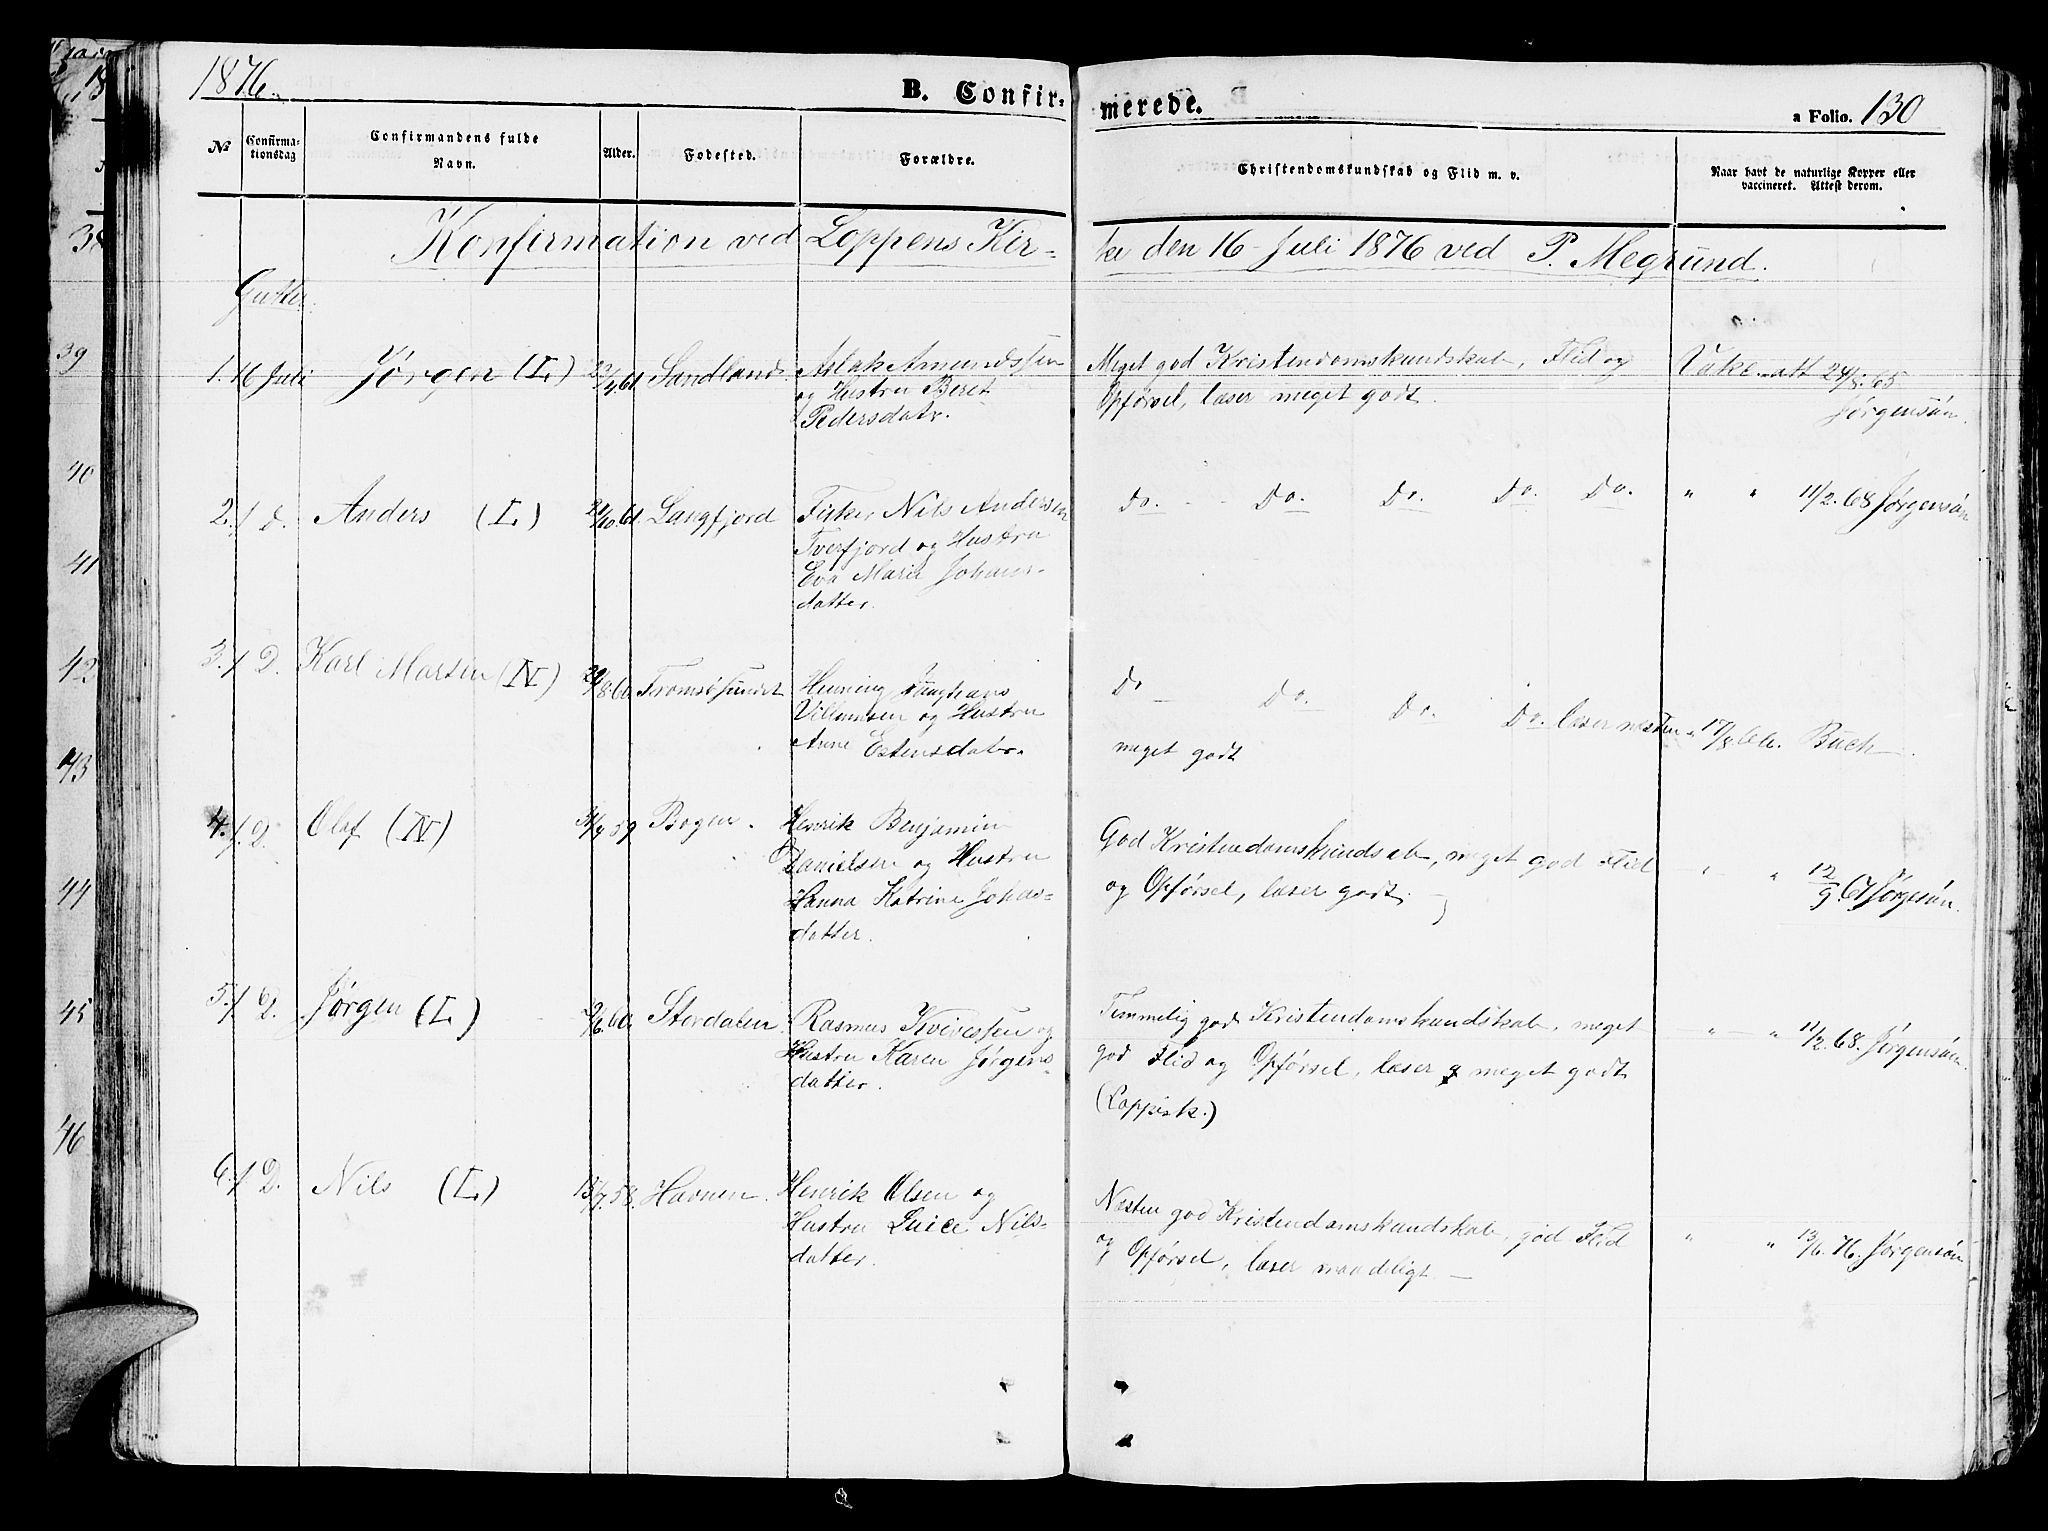 1876.
B. Confir-
merede.
a Folio. 130
No
Confirma-
tionsdag
Confirmandens fulde
Navn.
Alder.
Fødested.
Forældre.
Christendomskundskab og Flid m. v.
Naar havt de naturlige Kopper eller
vaccineret. Attest derom.
Konfirmation ved Loppens Kir-
ke den 16 Juli 1876 ved P. Megrund.
Gutter.
1. 16 Juli Jørgen (L) 23/4.61. Sandland. Aslak Amundssen
og Hustru Beret
Pedersdatr.
Meget god Kristendomskundskab, Flid og
Opførsel, læser meget godt.
Vake. att 24/8.65
Jørgensøn.
2. / d. Anders (L) 21/10.61. Langfjord Fisker Nils Andersen
Tverfjord og Hustru
Eva Marie Johans-
datter.
Do. - - Do. Do. Do. Do. " " 11/2.68 Jørgensøn
3. / D. Karl Marsen (N) 29/8.60. Tromsøsundet Henning Junghans
Villumsen og Hustru
Anne Estensdatr.
Do - Do. - Do. Do. læser næsten
meget godt
" 17/8.66. Buch
4. / D. Olaf (N) 31/7 59 Bogen. Henrik Benjamin
Danielsen og Hustru
Hanna Katrine Johas-
datter.
God Kristendomskundsab, meget god Flid
og Opførsel, læser godt. -
" " 12/9.67 Jørgesøn.
5. / D. Jørgen (L) 2/6.60. Stordalen. Rasmus Kvivessen og
Hustru Karen Jørgens-
datter.
Temmelig god Kristendomskundskab, meget
god Flid og Opførsel, læser g meget godt
(Lappisk.)
" - " 11/2.68. Jørgensøn.
6. / D. Nils (L) 15/7.58. Havnen. Henrik Olsen og
Hustru Luice Nils-
datter.
Næsten god Kristendomskundskab, god Flid
og Opførsel, læser maadeligt. -
" - " 13/6.76. Jørgensøn
38
39
40
41
42
43
44
45
46